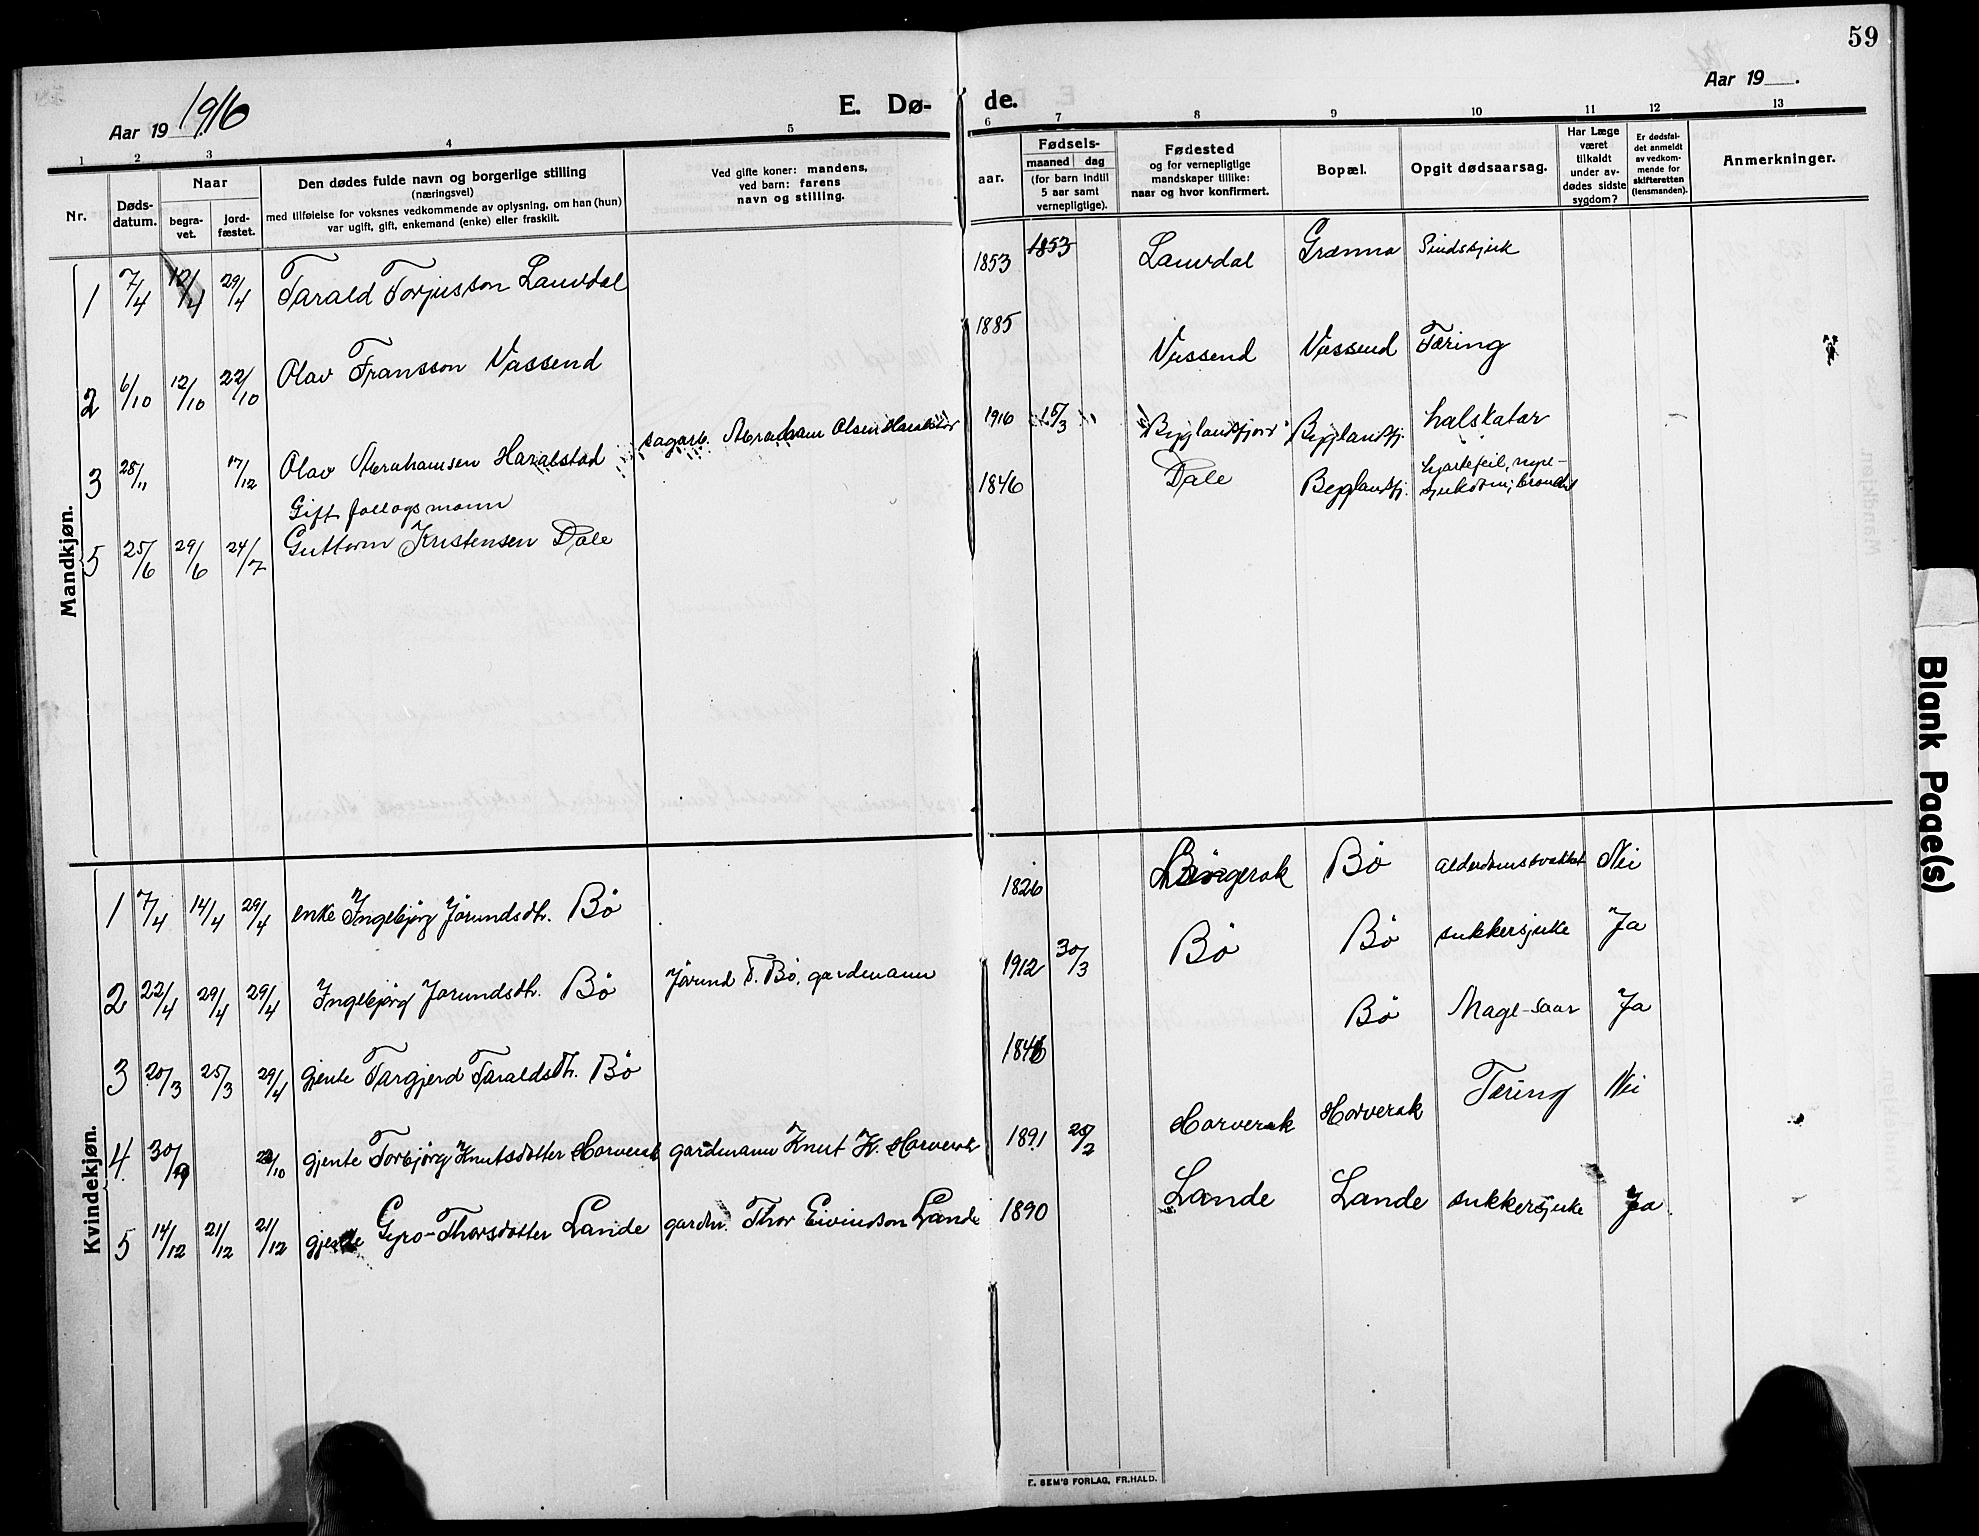 59
Aar 1916
E. Dø-
de.
Aar 19 .
1 2 3 4 5 6 7 8 9 10 11 12 13
Nr.
Døds-
datum.
Naar
begra-
vet.
jord-
fæstet.
Den dødes fulde navn og borgerlige stilling
(næringsvei)
med tilføielse for voksnes vedkommende av oplysning, om han (hun)
var ugift, gift, enkemand (enke) eller fraskilt.
Ved gifte koner: mandens,
ved barn: farens
navn og stilling.
Fødsels-
aar.
maaned dag
(for barn indtil
5 aar samt
vernepligtige).
Fødested
og for vernepligtige
mandskaper tillike:
naar og hvor konfirmert.
Bopæl.
Opgit dødsaarsag.
Har Læge
været
tilkaldt
under av-
dødes sidste
sygdom?
Er dødsfal-
det anmeldt
av vedkom-
mende for
skifteretten
(lensmanden).
Anmerkninger.
Mandkjøn.
1 7/4 12/4 29/4 Tarald Torjusson Lauvdal 1853 1853 Lauvdal Grænna Sindssjuk
2 6/10 12/10 22/10 Olav Fransson Vassend 1885 Vassend Vassend Tæring
3 28/11 17/12 Olav Abrahamsen Haralstad sagarb. Abraham Olsen Haralstad 1916 15/3 Byglandsfjord Byglandsfj. halskatar
Gift follogsmann
5 25/6 29/6 24/7 Guttorm Kristensen Dale 1846 Dale Byglandsfj. hjartefeil, nyre-
sjukdom,
Kvindekjøn.
1 7/4 14/4 29/4 enke Ingebjørg Jørundsdtr. Bø 1826 Bø Alderdomssvakhet Nei
2 22/4 29/4 29/4 Ingebjørg Jørundsdtr. Bø Jørund T. Bø, gardmann 1912 30/3 Bø Bø sukkersjuke Ja
3 20/3 25/3 29/4 gjente Targjerd Taraldsdtr. Bø Bø Mage-saar Ja
4 30/9 22/10 gjente Torbjørg Knutsdotter Horverak gardmann Knut K. Horverak 1891 25/2 Horverak Horverak Tæring Nei
5 14/12 21/12 21/12 gjente Gyro Thorsdotter Lande gardm. Thor Eivindson Lande 1890 Lande Lande sukkersjuke Ja.
E. SEM'S FORLAG, FR.HALD.
Blank Page(s)